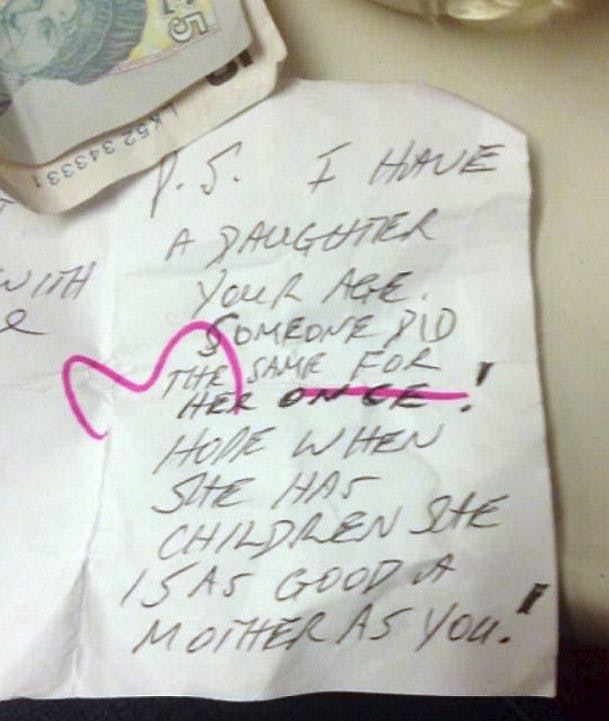 £5
LK52 343331
WITH
P.S. I HAVE
A DAUGHTER
YOUR AGE.
SOMEONE DID
THE SAME FOR
HER ONCE!
HOPE WHEN
SHE HAS
CHILDREN SHE
IS AS GOOD A
MOTHER AS YOU!